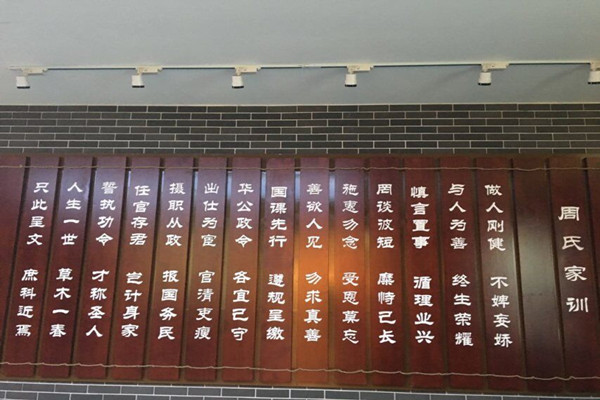 周氏家训
做人刚健 不婢妄娇
与人为善 终生荣耀
慎言重事 循理业兴
罔谈彼短 糜恃己长
施惠勿念 受恩莫忘
善欲人见 勿求真善
国课先行 遵规呈缴
华公政令 各宜己守
出仕为宦 官清吏瘦
摄职从政 报国务民
任官存君 岂计身家
誓执功令 才称圣人
人生一世 草木一春
只此呈文 庶科近焉